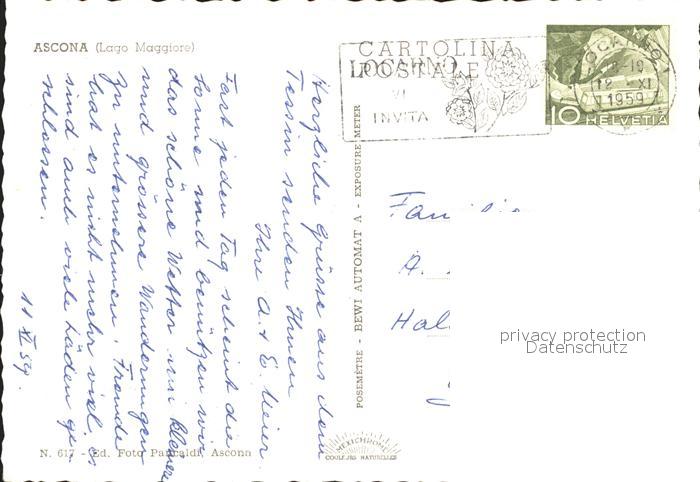 ASCONA (Lago Maggiore)
CARTOLINA
POSTALE
LOCARNO
VI
INVITA
LOCARNO
-19
12. XI
1959
10 HELVETIA
Herzliche Grüsse aus dem
Tessin senden Ihnen
Ihre A. + E. Meier.
Fast jeden Tag scheint die
Sonne und benützen wir
das schöne Wetter um kleinere
und grössere Wanderungen
zu unternehmen. Fremde
hat es nicht mehr viel, es
sind auch viele Läden ge-
schlossen.
11 XI 59.
POSEMÈTRE - BEWI AUTOMAT A - EXPOSURE METER
A.
Hal
privacy protection
Datenschutz
N. 617 - Ed. Foto Pancaldi, Ascona
MEXICHROME
COULEURS NATURELLES